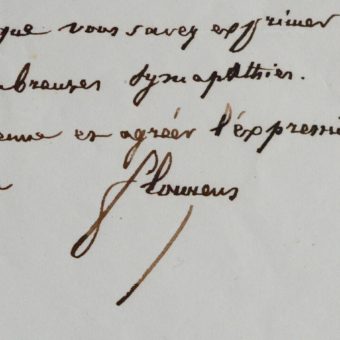 que vous savez exprimer
breuses sympathies.
et agréer l'expressi
Flourens